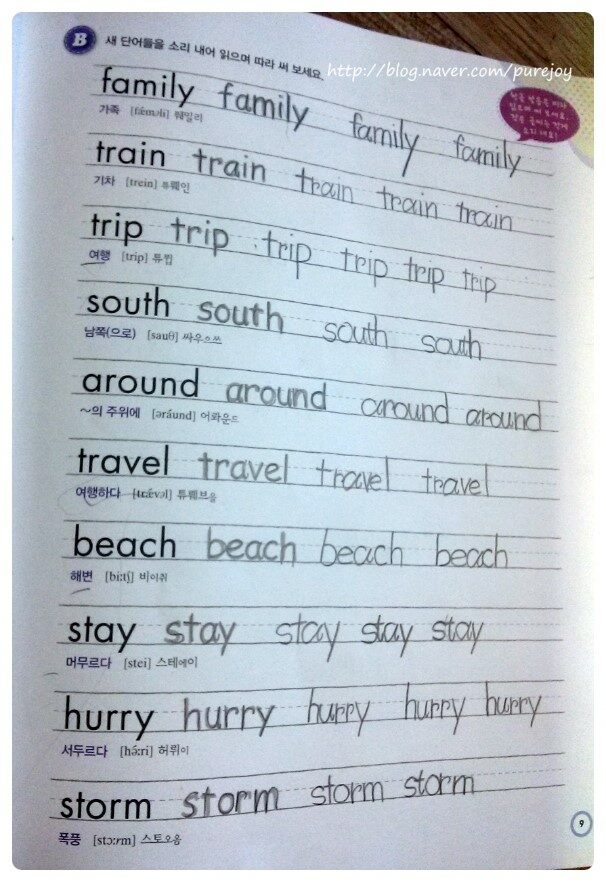 B 새 단어들을 소리 내어 읽으며 따라 써 보세요.
http://blog.naver.com/purejoy
family family family family
가족 [fǽməli] 훼밀리
train train train train train
기차 [trein] 튜뤠인
trip trip trip trip trip trip
여행 [trip] 튜륍
south south south south
남쪽(으로) [sauθ] 싸우으쓰
around around around around
~의 주위에 [əráund] 어롸운드
travel travel travel travel
여행하다 [trǽvəl] 튜뤠브을
beach beach beach beach
해변 [bi:tʃ] 비이취
stay stay stay stay stay
머무르다 [stei] 스테에이
hurry hurry hurry hurry hurry
서두르다 [hə́:ri] 허뤼이
storm storm storm storm
폭풍 [stɔ:rm] 스토오옴
9